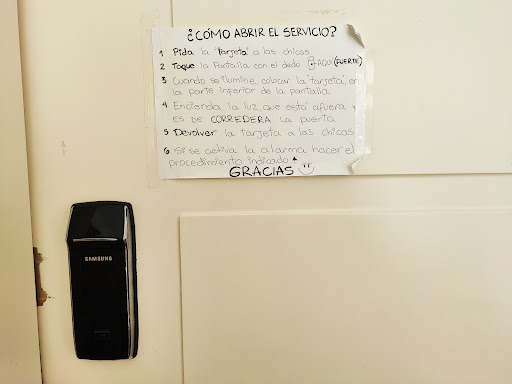 ¿CÓMO ABRIR EL SERVICIO?
1 Pida la "tarjeta" a las chicas
2 Toque la Pantalla con el dedo (FUERTE)
3 Cuando se ilumine, colocar la "tarjeta", en
la parte inferior de la pantalla
4 Encienda la luz, que está afuera y
ES DE CORREDERA la puerta
5 Devolver la tarjeta a las chicas
6 Si se activa la alarma hacer el
procedimiento indicado
GRACIAS
SAMSUNG